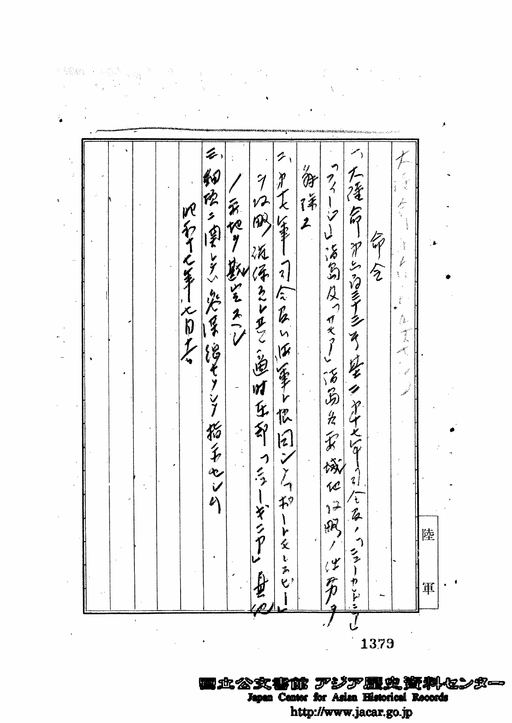 命令
一、大陸命第六百三十三号ニ基ク第十七軍司令官ノ「ニューカレドニア」
「フィージー」諸島及「サモア」諸島各要域攻略ノ任務ヲ
解除ス
二、第十七軍司令官ハ海軍ト協同シ「ポートモレスビー」
ヲ攻略確保スルト共ニ適時東部「ニューギニア」
ノ要地ヲ戡定スベシ
三、細項ニ関シテハ参謀総長ヲシテ指示セシム
昭和十七年七月十一日
陸軍
1379
國立公文書館 アジア歴史資料センター
Japan Center for Asian Historical Records
http://www.jacar.go.jp